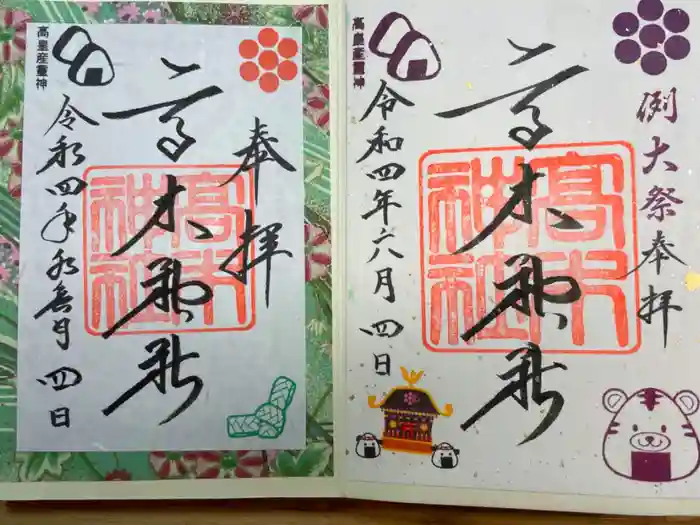 例大祭奉拝
高木神社
高木神社
令和四年六月四日
高皇産靈神
奉拝
高木神社
高木神社
令和四年水無月四日
高皇産靈神